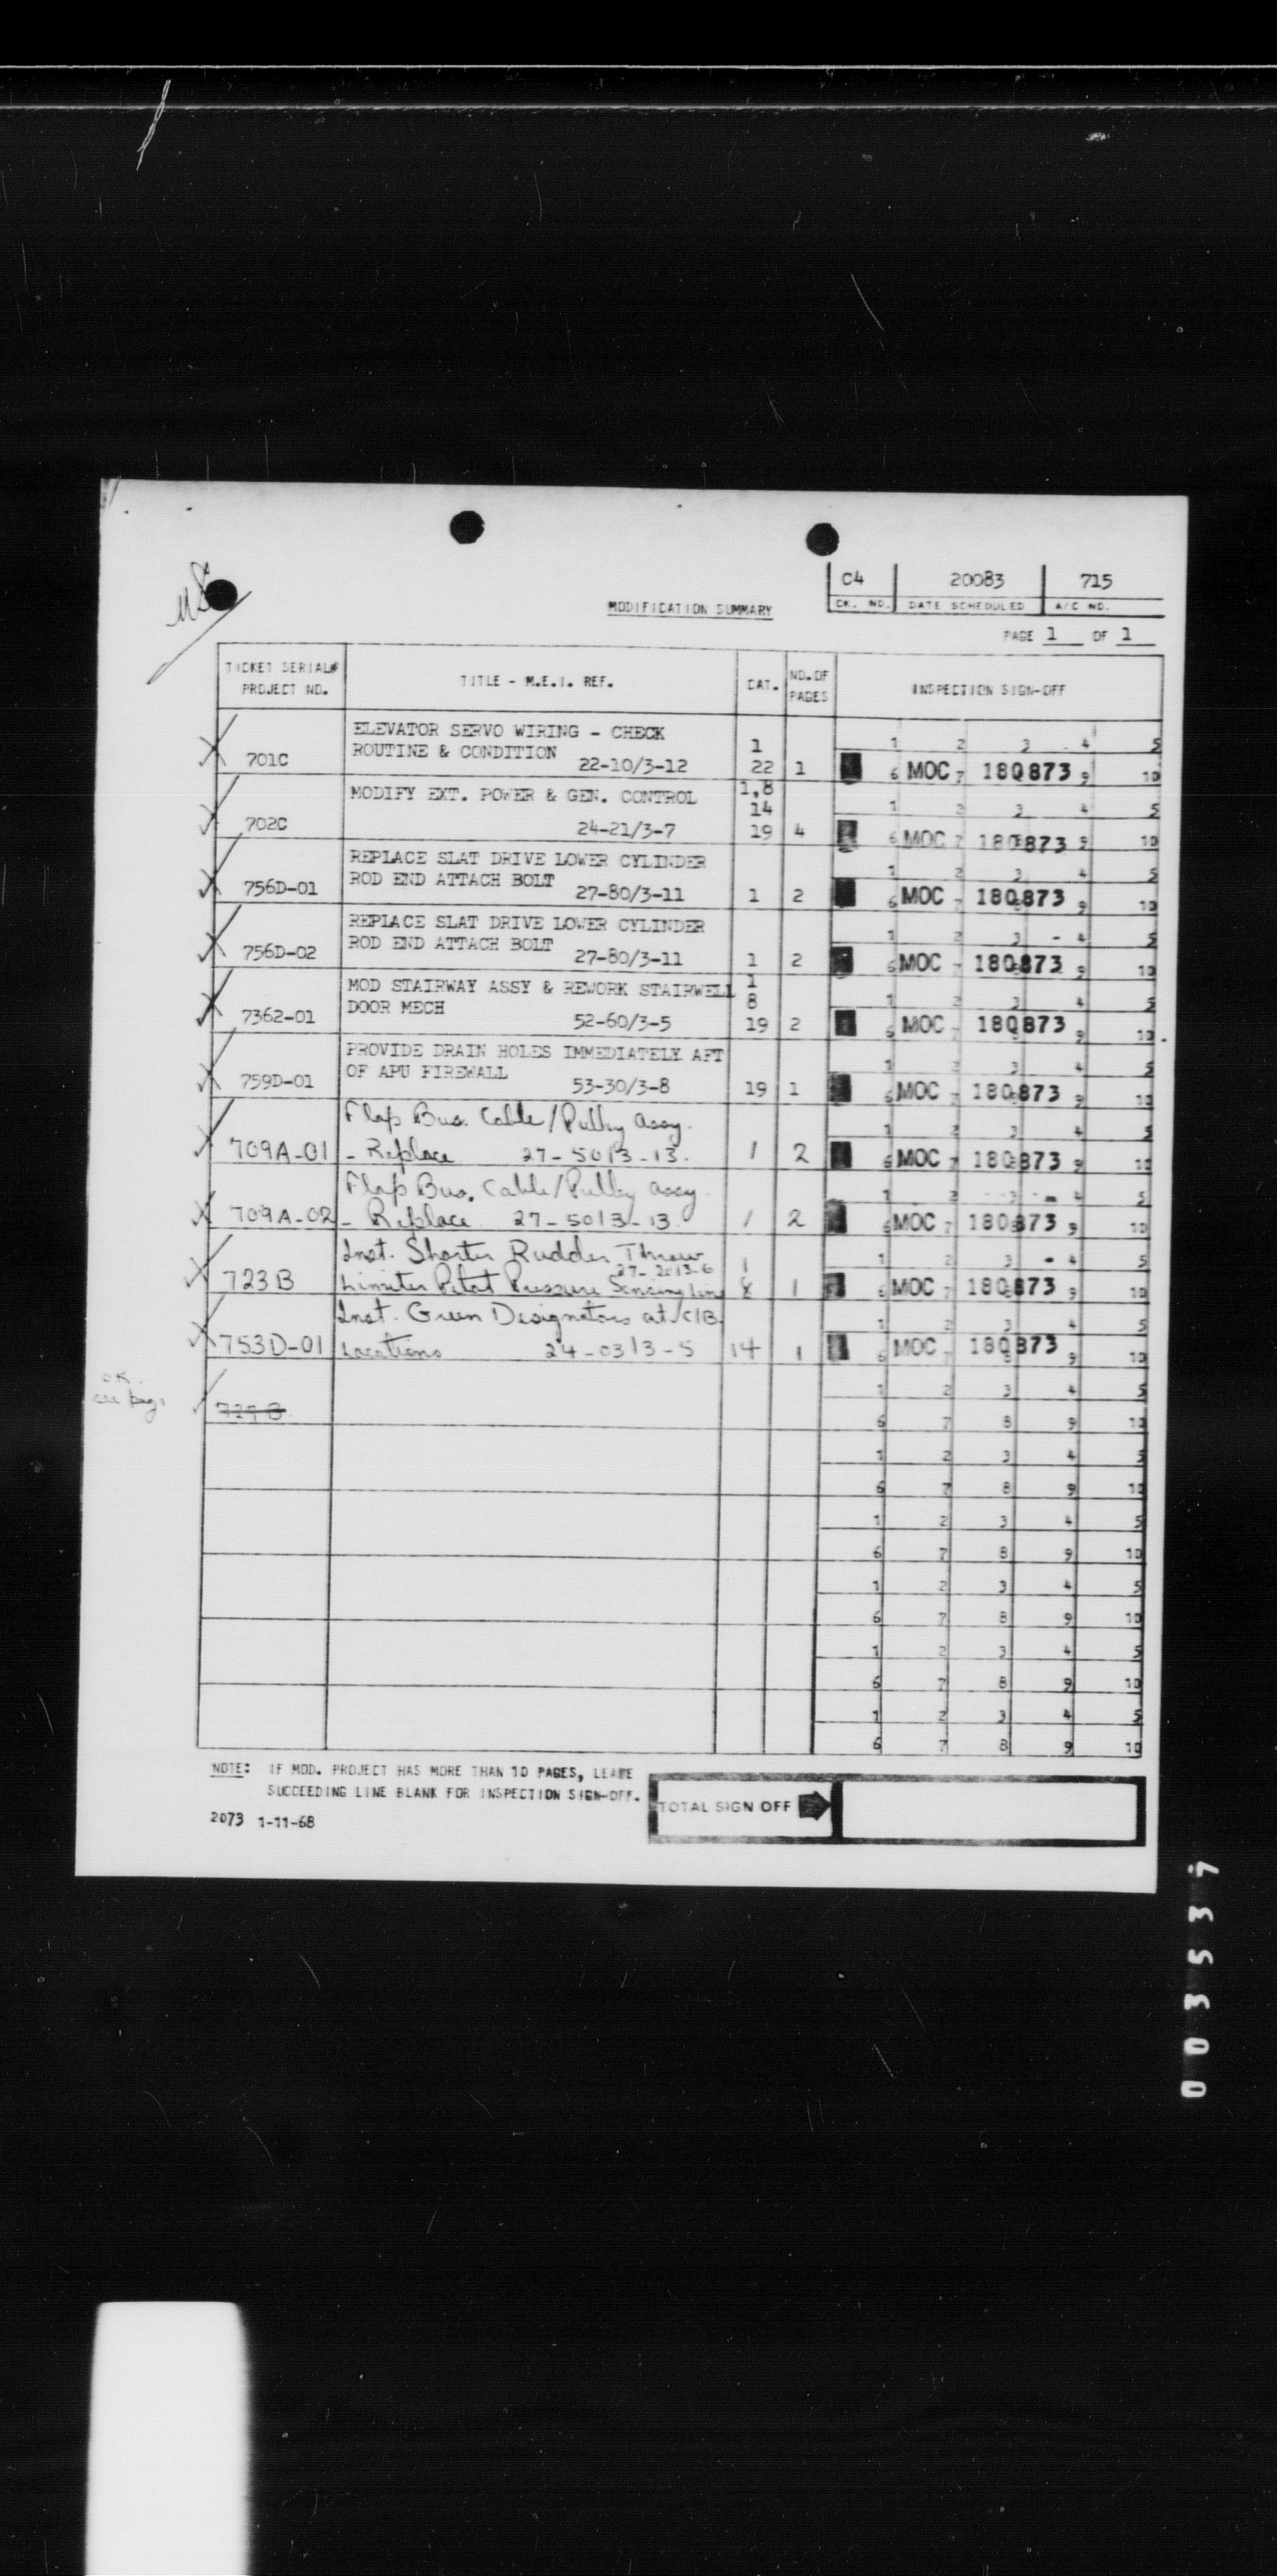 C4 20083 715
CK. NO. DATE SCHEDULED A/C NO.
MODIFICATION SUMMARY
PAGE 1 OF 1
TICKET SERIAL# PROJECT NO. TITLE - M.E.I. REF. CAT. NO. OF PAGES INSPECTION SIGN-OFF
ELEVATOR SERVO WIRING - CHECK
ROUTINE & CONDITION 1 1 2 3 4 5
701C 22-10/3-12 22 1 6 MOC 7 180873 9 10
MODIFY EXT. POWER & GEN. CONTROL 1,8
14 1 2 3 4 5
702C 24-21/3-7 19 4 6 MOC 7 180873 9 10
REPLACE SLAT DRIVE LOWER CYLINDER
ROD END ATTACH BOLT 1 2 3 4 5
756D-01 27-80/3-11 1 2 6 MOC 7 180873 9 10
REPLACE SLAT DRIVE LOWER CYLINDER
ROD END ATTACH BOLT 1 2 3 4 5
756D-02 27-80/3-11 1 2 6 MOC 7 180873 9 10
MOD STAIRWAY ASSY & REWORK STAIRWELL 1
DOOR MECH 8 1 2 3 4 5
7362-01 52-60/3-5 19 2 6 MOC 7 180873 9 10
PROVIDE DRAIN HOLES IMMEDIATELY AFT
OF APU FIREWALL 1 2 3 4 5
759D-01 53-30/3-8 19 1 6 MOC 7 180873 9 10
Flap Bus. Cable/Pulley assy. 1 2 3 4 5
709A-01 - Replace 27-50/3-13. 1 2 6 MOC 7 180873 9 10
Flap Bus. Cable/Pulley assy. 1 2 3 4 5
709A-02 - Replace 27-50/3-13 1 2 6 MOC 7 180873 9 10
Inst. Shorter Rudder Throw 1 1 2 3 4 5
27-20/3-6
723B Limiter Pitot Pressure Sensing Line 8 1 6 MOC 7 180873 9 10
Inst. Green Designators at C/B 1 2 3 4 5
753D-01 Locations 24-03/3-5 14 1 6 MOC 7 180873 9 10
OK.
1 2 3 4 5
727B 6 7 8 9 10
1 2 3 4 5
6 7 8 9 10
1 2 3 4 5
6 7 8 9 10
1 2 3 4 5
6 7 8 9 10
1 2 3 4 5
6 7 8 9 10
1 2 3 4 5
6 7 8 9 10
NOTE: IF MOD. PROJECT HAS MORE THAN 10 PAGES, LEAVE
SUCCEEDING LINE BLANK FOR INSPECTION SIGN-OFF.
TOTAL SIGN OFF
2073 1-11-68
003537